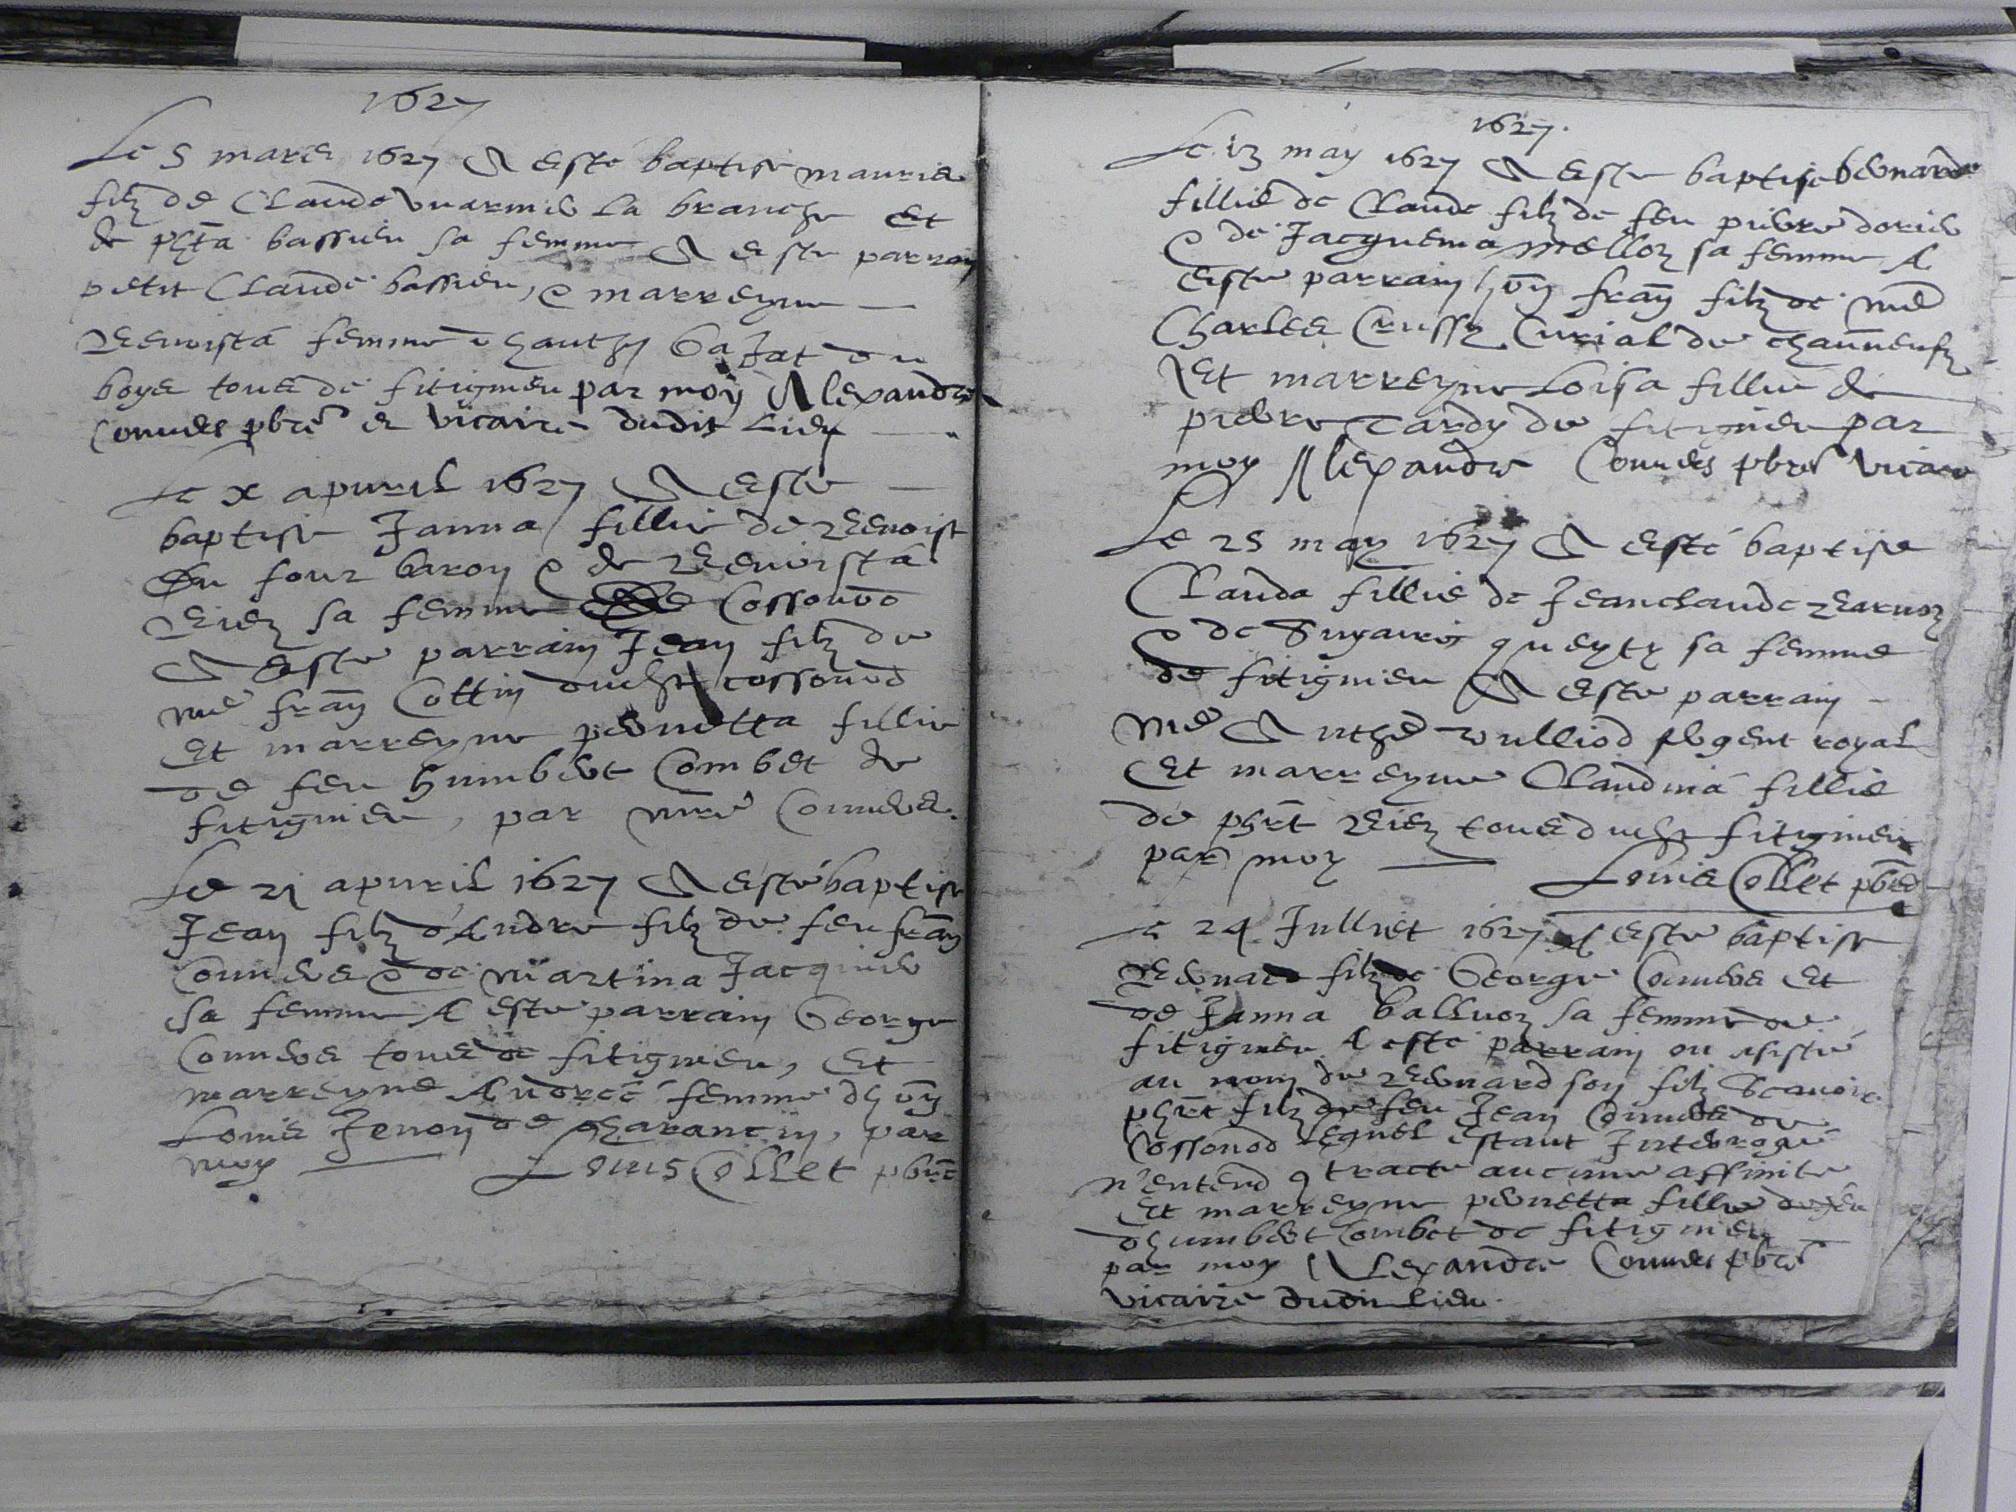 1627
Le 5 mars 1627 A esté baptisé mauris
filz de Claude vuarnier la branche Et
de phta bassieu sa femme A este parrain
petit Claude bassieu, e marreyne
Benoista femme
boys tous de fitignieu par moy Alexandre
Conners pbre et vicaire dudit Lieu
Le x apuril 1627 A este
baptise Janna fillie de Benoist
Du four baron e de Benoista
Biez sa femme Cossonod
A este parrain Jean filz de
me fran Cottin dudict cossonod
Et marreyne pernetta fillie
de feu humbert Combet de
fitignieu, par mre Conners.
Le 21 apuril 1627 A esté baptise
Jean filz d'Andre filz de feu fran
Conners e de Martina Jacquier
sa femme A este parrain George
Conners tous de fitignieu, Et
marreyne Andreé femme dhon
Louis Jenon de Charancin, par
moy Louis Collet pbre
1627.
Le 13 may 1627 A este baptise bernarde
fillie de Claude filz de feu pierre dorier
e de Jacquema Melloz sa femme A
este parrain hon fran filz de me
Charles Crussy Curial de chaunneufz
Et marreyne Loisa fillie de
pierre Tardy de fitignieu par
moy Alexandre Conners pbre vicaire
Le 25 may 1627 A esté baptise
Clauda fillie de Jeanclaude Bearnoz
e de Suganne queyty sa femme
de fitignieu A este parrain
Me Anthe vulliod sergent royal
Et marreyne Claudina fillie
de phrt Biez tous dudict fitignieu
par moy
Louis Collet pbre
Le 24 Julliet 1627 A este baptise
Bernard filz de George Conners Et
de Janna balluoz sa femme de
fitignieu A esté parrain ou assisté
au nom de Bernard son filz Scauoir
phrt filz de feu Jean Conners de
Cossonod Lequel estant Interogué
n'entend 9tracte aucune affinite
Et marreyne pernetta fillie de feu
dhumbert Combet de fitignieu
par moy Alexandre Conners pbre
vicaire dudit lieu.